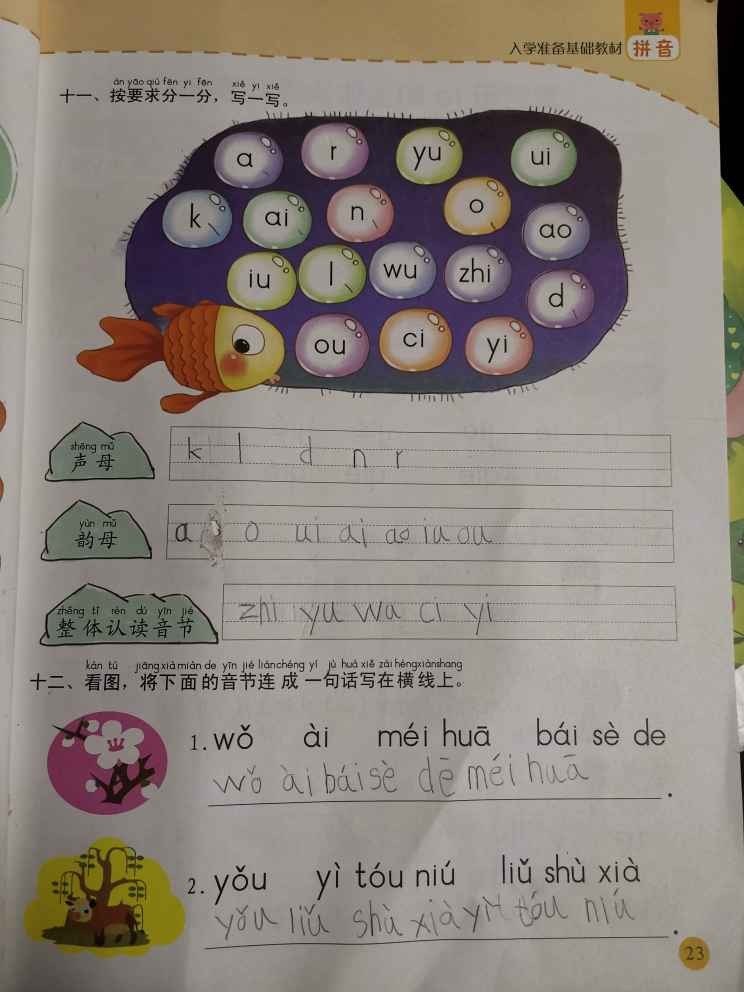 入学准备基础教材 拼音
àn yāo qiú fēn yi fēn, xiě yi xiě
十一、按要求分一分，写一写。
a r yu ui
k ai n o ao
iu l wu zhi d
ou ci yi
shēng mǔ
声母
k l d n r
yùn mǔ
韵母
a o ui ai ao iu ou
zhěng tǐ rèn dú yīn jié
整体认读音节
zhi yu wa ci yi
kàn tú jiāng xià miàn de yīn jié lián chéng yí jù huà xiě zài héng xiàn shang
十二、看图，将下面的音节连成一句话写在横线上。
1. wǒ ài méi huā bái sè de
wǒ ài bái sè dē méi huā.
2. yǒu yì tóu niú liǔ shù xià
yǒu liǔ shù xià yì tóu niú.
23